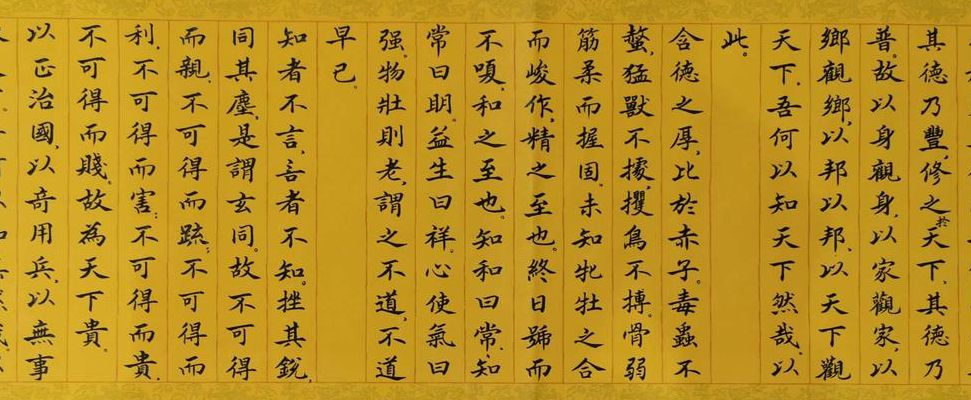 其德乃豐,修之於天下,其德乃
普。故以身觀身,以家觀家,以
鄉觀鄉,以邦以邦,以天下觀
天下。吾何以知天下然哉。以
此。
含德之厚,比於赤子。毒蟲不
螫,猛獸不據,攫鳥不搏。骨弱
筋柔而握固。未知牝牡之合
而峻作,精之至也。終日號而
不嗄,和之至也。知和曰常,知
常曰明。益生曰祥。心使氣曰
强。物壯則老,謂之不道,不道
早已。
知者不言,言者不知。挫其銳,
同其塵,是謂玄同。故不可得
而親,不可得而疏;不可得而
利,不可得而害;不可得而貴,
不可得而賤。故為天下貴。
以正治國,以奇用兵,以無事